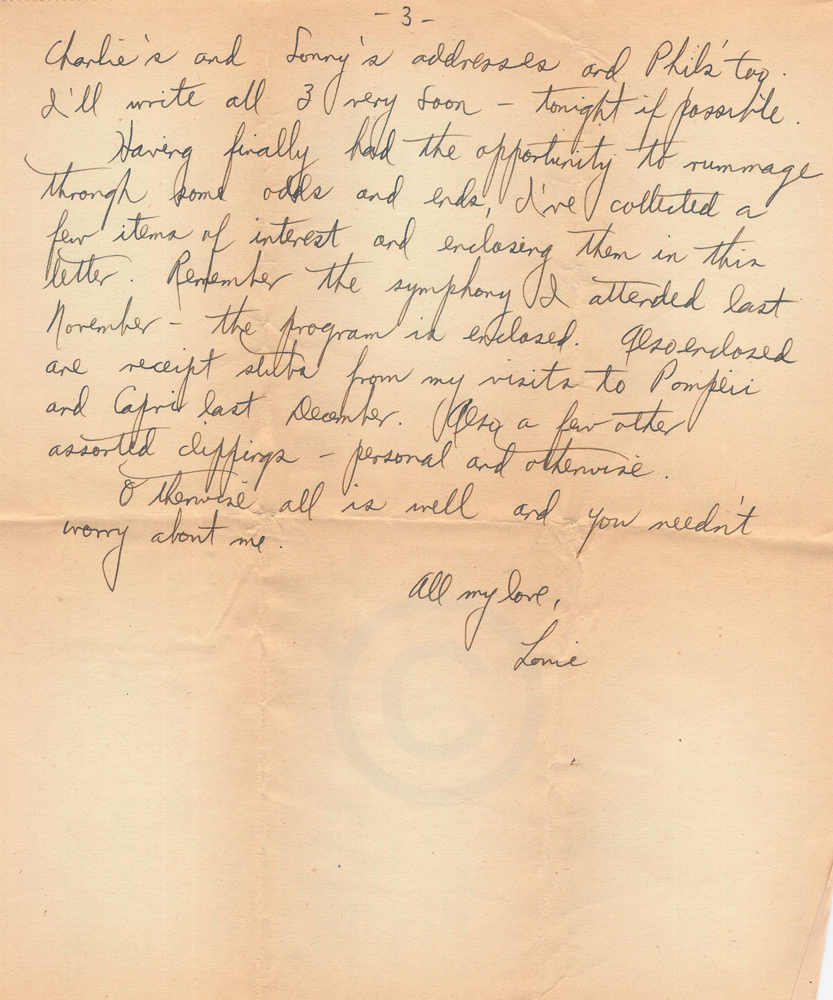 - 3 -
Charlie's and Sonny's addresses and Phil's too.
I'll write all 3 very soon - tonight if possible.
Having finally had the opportunity to rummage
through some odds and ends, I've collected a
few items of interest and enclosing them in this
letter. Remember the symphony I attended last
November - the program is enclosed. Also enclosed
are receipt stubs from my visits to Pompeii
and Capri last December. Also a few other
assorted clippings - personal and otherwise.
Otherwise all is well and you needn't
worry about me.
All my love,
Louie
©